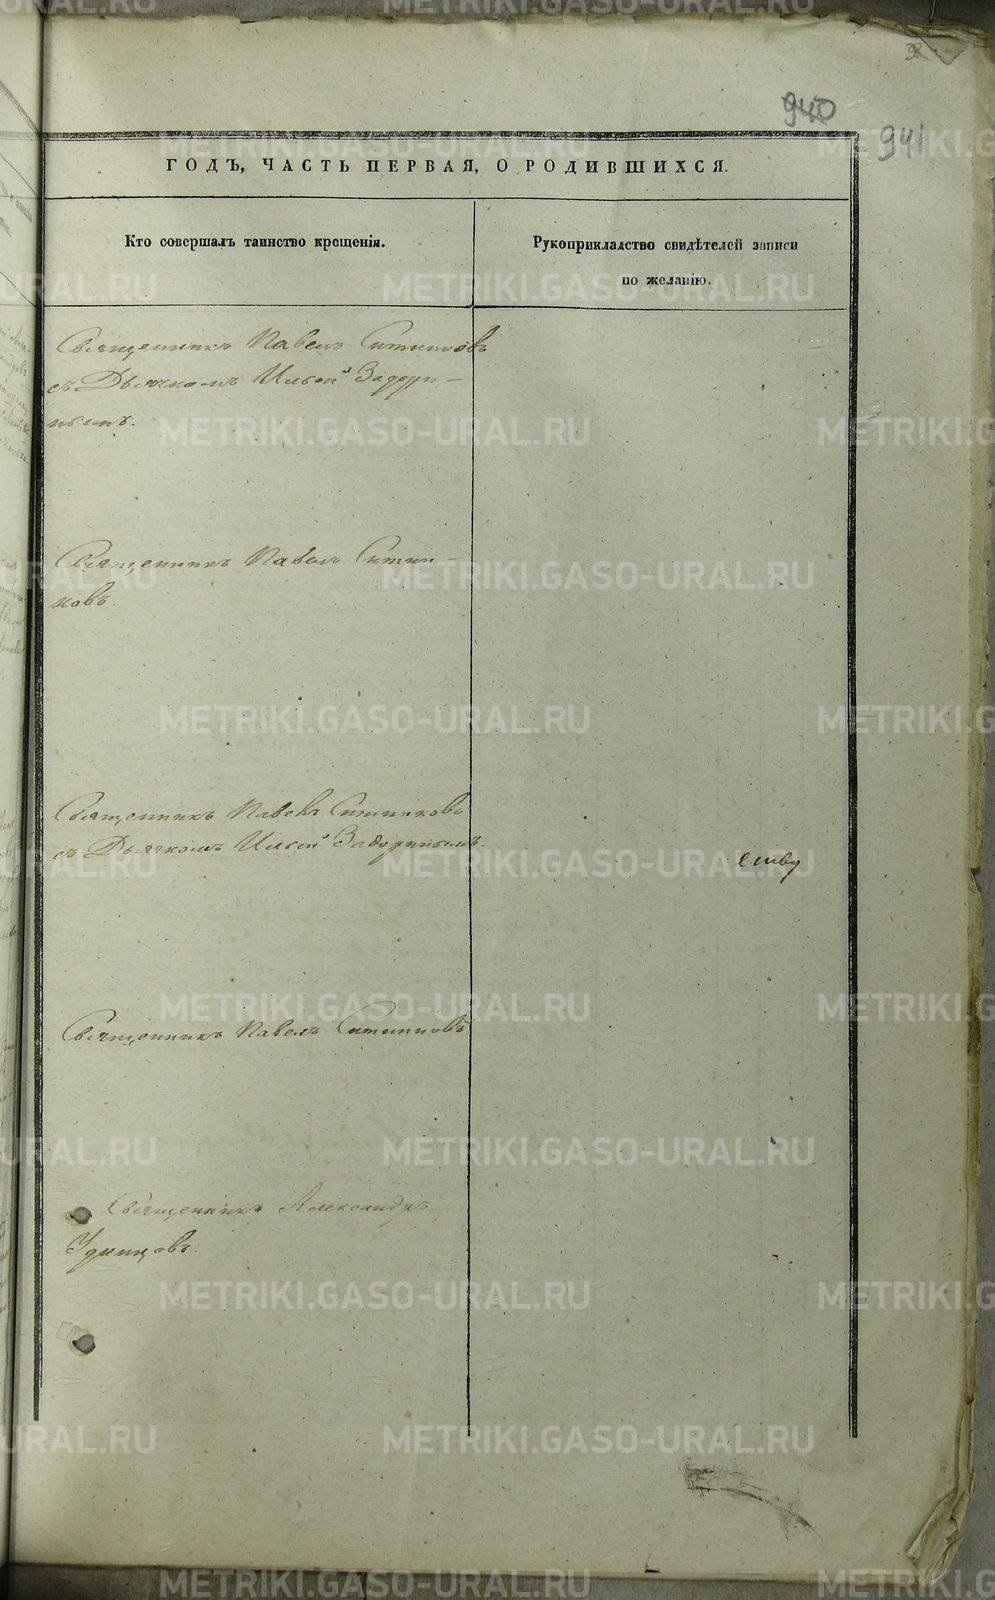 940
941
ГОДЪ, ЧАСТЬ ПЕРВАЯ, О РОДИВШИХСЯ.
Кто совершалъ таинство крещенія.
Рукоприкладство свидѣтелей записи
по желанію.
Священникъ Павелъ Ситниковъ
съ Дьячкомъ Ильей Задори-
нымъ.
Священникъ Павелъ Ситни-
ковъ.
Священникъ Павелъ Ситниковъ
съ Дьячкомъ Ильей Задоринымъ.
ству
Священникъ Павелъ Ситниковъ
Священникъ Александръ
Удинцовъ.
METRIKI.GASO-URAL.RU